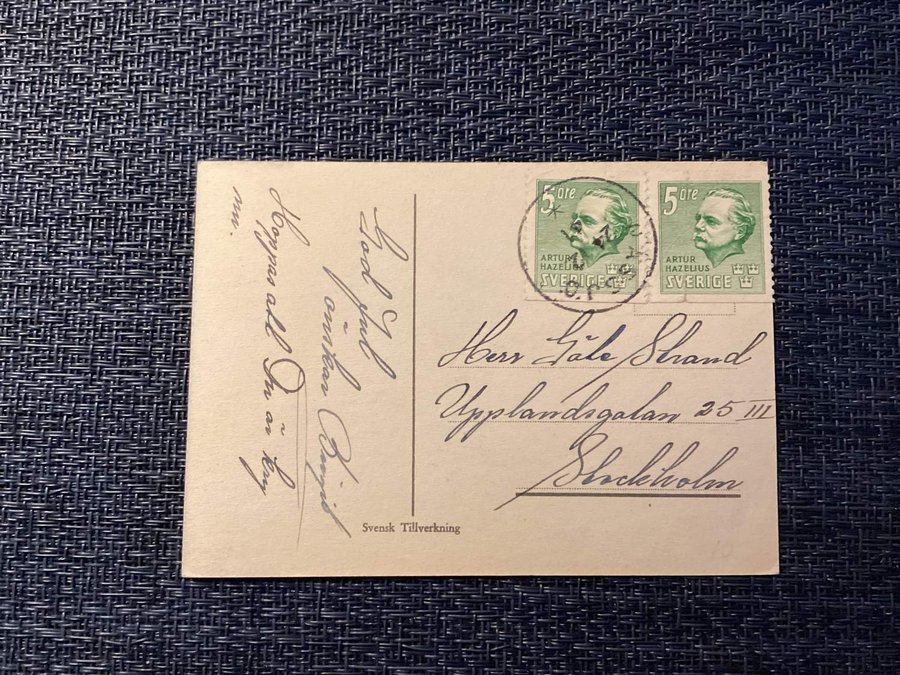 5 öre
ARTUR
HAZELIUS
SVERIGE
5 öre
ARTUR
HAZELIUS
SVERIGE
Herr Göte Strand
Upplandsgatan 25 III
Stockholm
God Jul
önskar Birgit
Hoppas att Du är kry
nu.
Svensk Tillverkning